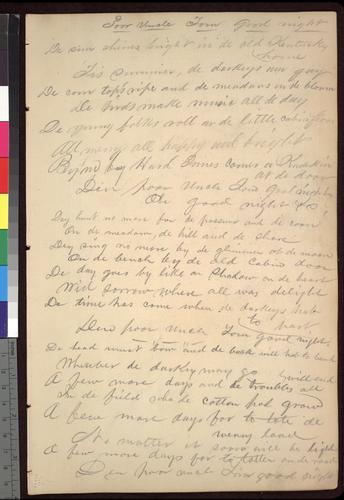 Poor Uncle Tom good night
De sun shines bright in de old Kentucky
home
Tis summer, de darkeys am gay
De corn tops ripe and de meadows in de bloom
De birds make music all de day
De young folks roll on de little cabin floor
All merry, all happy and bright
By'nd by Hard Times comes a knockin
at de door
Den poor Uncle Tom good night
Oh good night
Dey hunt no more for de possum and de coon
On de meadow, de hill and de shore
Dey sing no more by de glimmer ob de moon
On de bench by de old Cabin door
De day goes by like a Shadow on de heart
Wid sorrow, where all was delight
De time has come when de darkeys hab
to part
Den poor Uncle Tom good night
De head must bow and de back will hab to bend
Wherever de darkey may go
A few more days and de troubles all
will end
In de field where cotton
A few more days for to tote de
weary load
No matter it will be light
A few more days for to totter on de road
Den poor uncle Tom good night